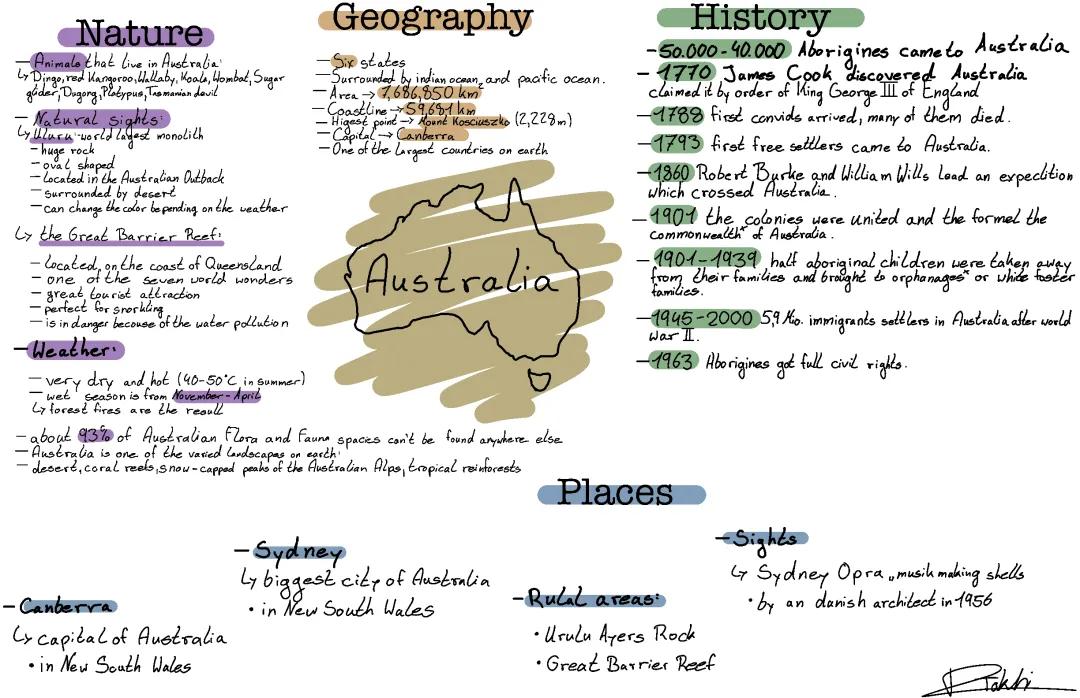 Nature
– Animals that live in Australia:
↳ Dingo, red Kangoroo, Wallaby, Koala, Wombat, Sugar
glider, Dugong, Platypus, Tasmanian devil
– Natural sights:
↳ Uluru - world largest monolith
– huge rock
– oval shaped
– located in the Australian Outback
– surrounded by desert
– can change the color depending on the weather
↳ the Great Barrier Reef:
– located, on the coast of Queensland
– one of the seven world wonders
– great tourist attraction
– perfect for snorkling
– is in danger because of the water pollution
– Weather:
– very dry and hot (40-50°C in summer)
– wet season is from November - April
↳ forest fires are the result
– about 93% of Australian Flora and Fauna spacies can't be found anywhere else
– Australia is one of the varied landscapes on earth:
– desert, coral reefs, snow-capped peaks of the Australian Alps, tropical reinforests
Geography
– Six states
– Surrounded by indian ocean, and pacific ocean.
– Area → 7,686,850 km²
– Coastline → 59,681 km
– Higest point → Mount Kosciuszko (2,228m)
– Capital → Canberra
– One of the largest countries on earth
Australia
History
– 50.000 - 40.000 Aborigines came to Australia
– 1770 James Cook discovered Australia
claimed it by order of King George III of England
– 1788 first convids arrived, many of them died.
– 1793 first free settlers came to Australia.
– 1860 Robert Burke and William Wills lead an expedition
which crossed Australia.
– 1901 the colonies were united and the formel the
commonwealth* of Australia.
– 1901-1939 half aboriginal children were taken away
from their families and brought to orphanages* or white foster
families.
– 1945-2000 5,9 Mio. immigrants settlers in Australia after world
war II.
– 1963 Aborigines got full civil rights.
Places
– Canberra
↳ capital of Australia
• in New South Wales
– Sydney
↳ biggest city of Australia
• in New South Wales
– Rural areas:
• Urulu Ayers Rock
• Great Barrier Reef
– Sights
↳ Sydney Opra „musik making shells
• by an danish architect in 1956